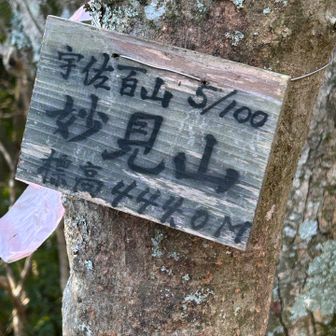 宇佐百山 5/100
妙見山
標高444.0M